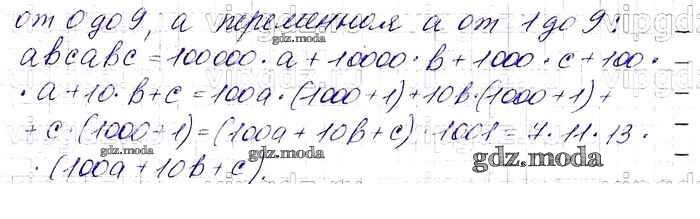 от 0 до 9, а переменной а от 1 до 9:
abcabc = 100000 · a + 10000 · b + 1000 · c + 100 ·
· a + 10 · b + c = 100a · (1000 + 1) + 10b · (1000 + 1) +
+ c · (1000 + 1) = (100a + 10b + c) · 1001 = 7 · 11 · 13 ·
gdz.moda
gdz.moda
· (100a + 10b + c).
gdz.moda